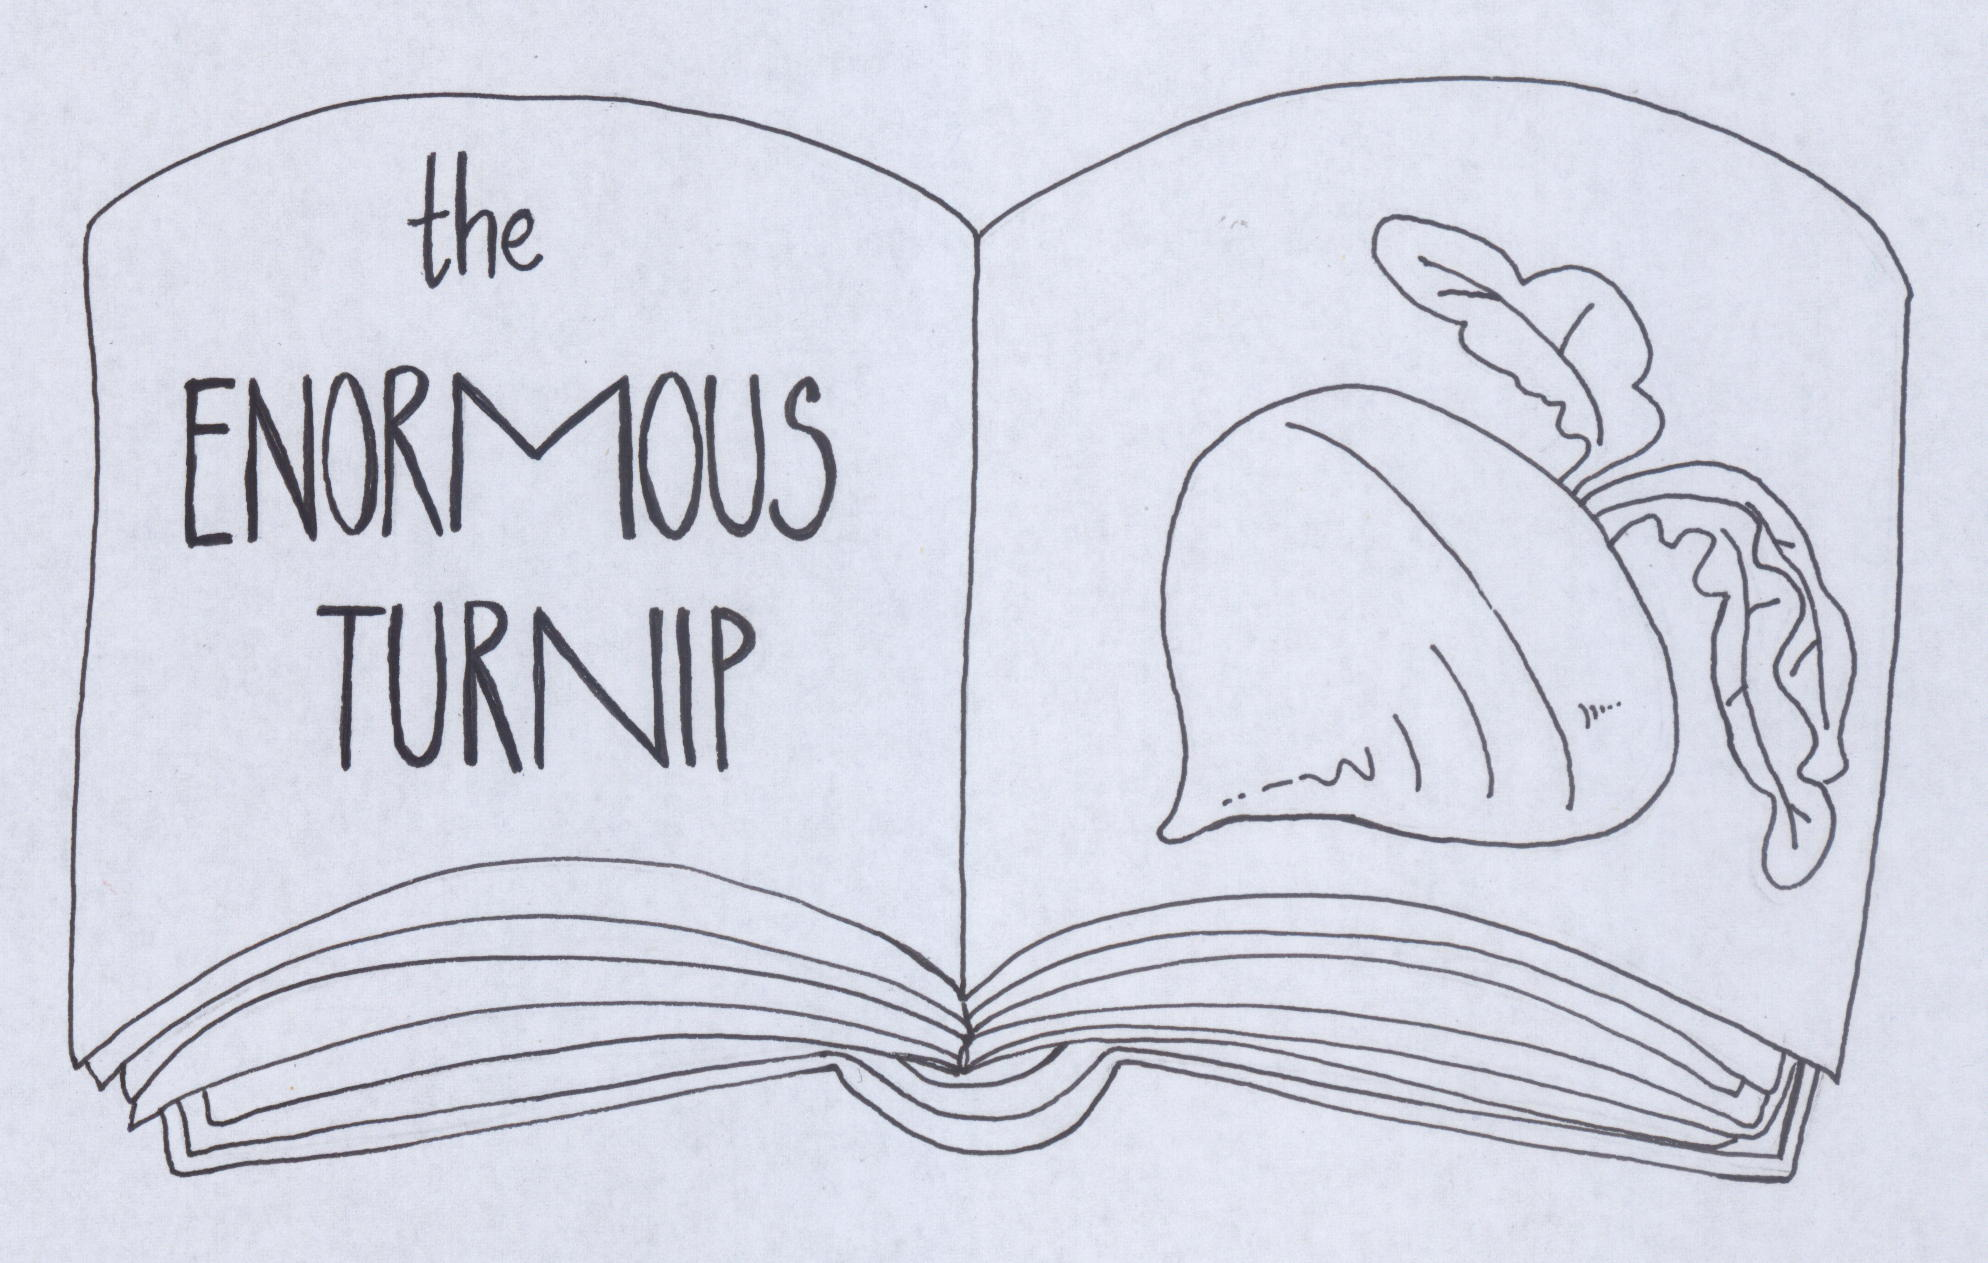 the
ENORMOUS
TURNIP